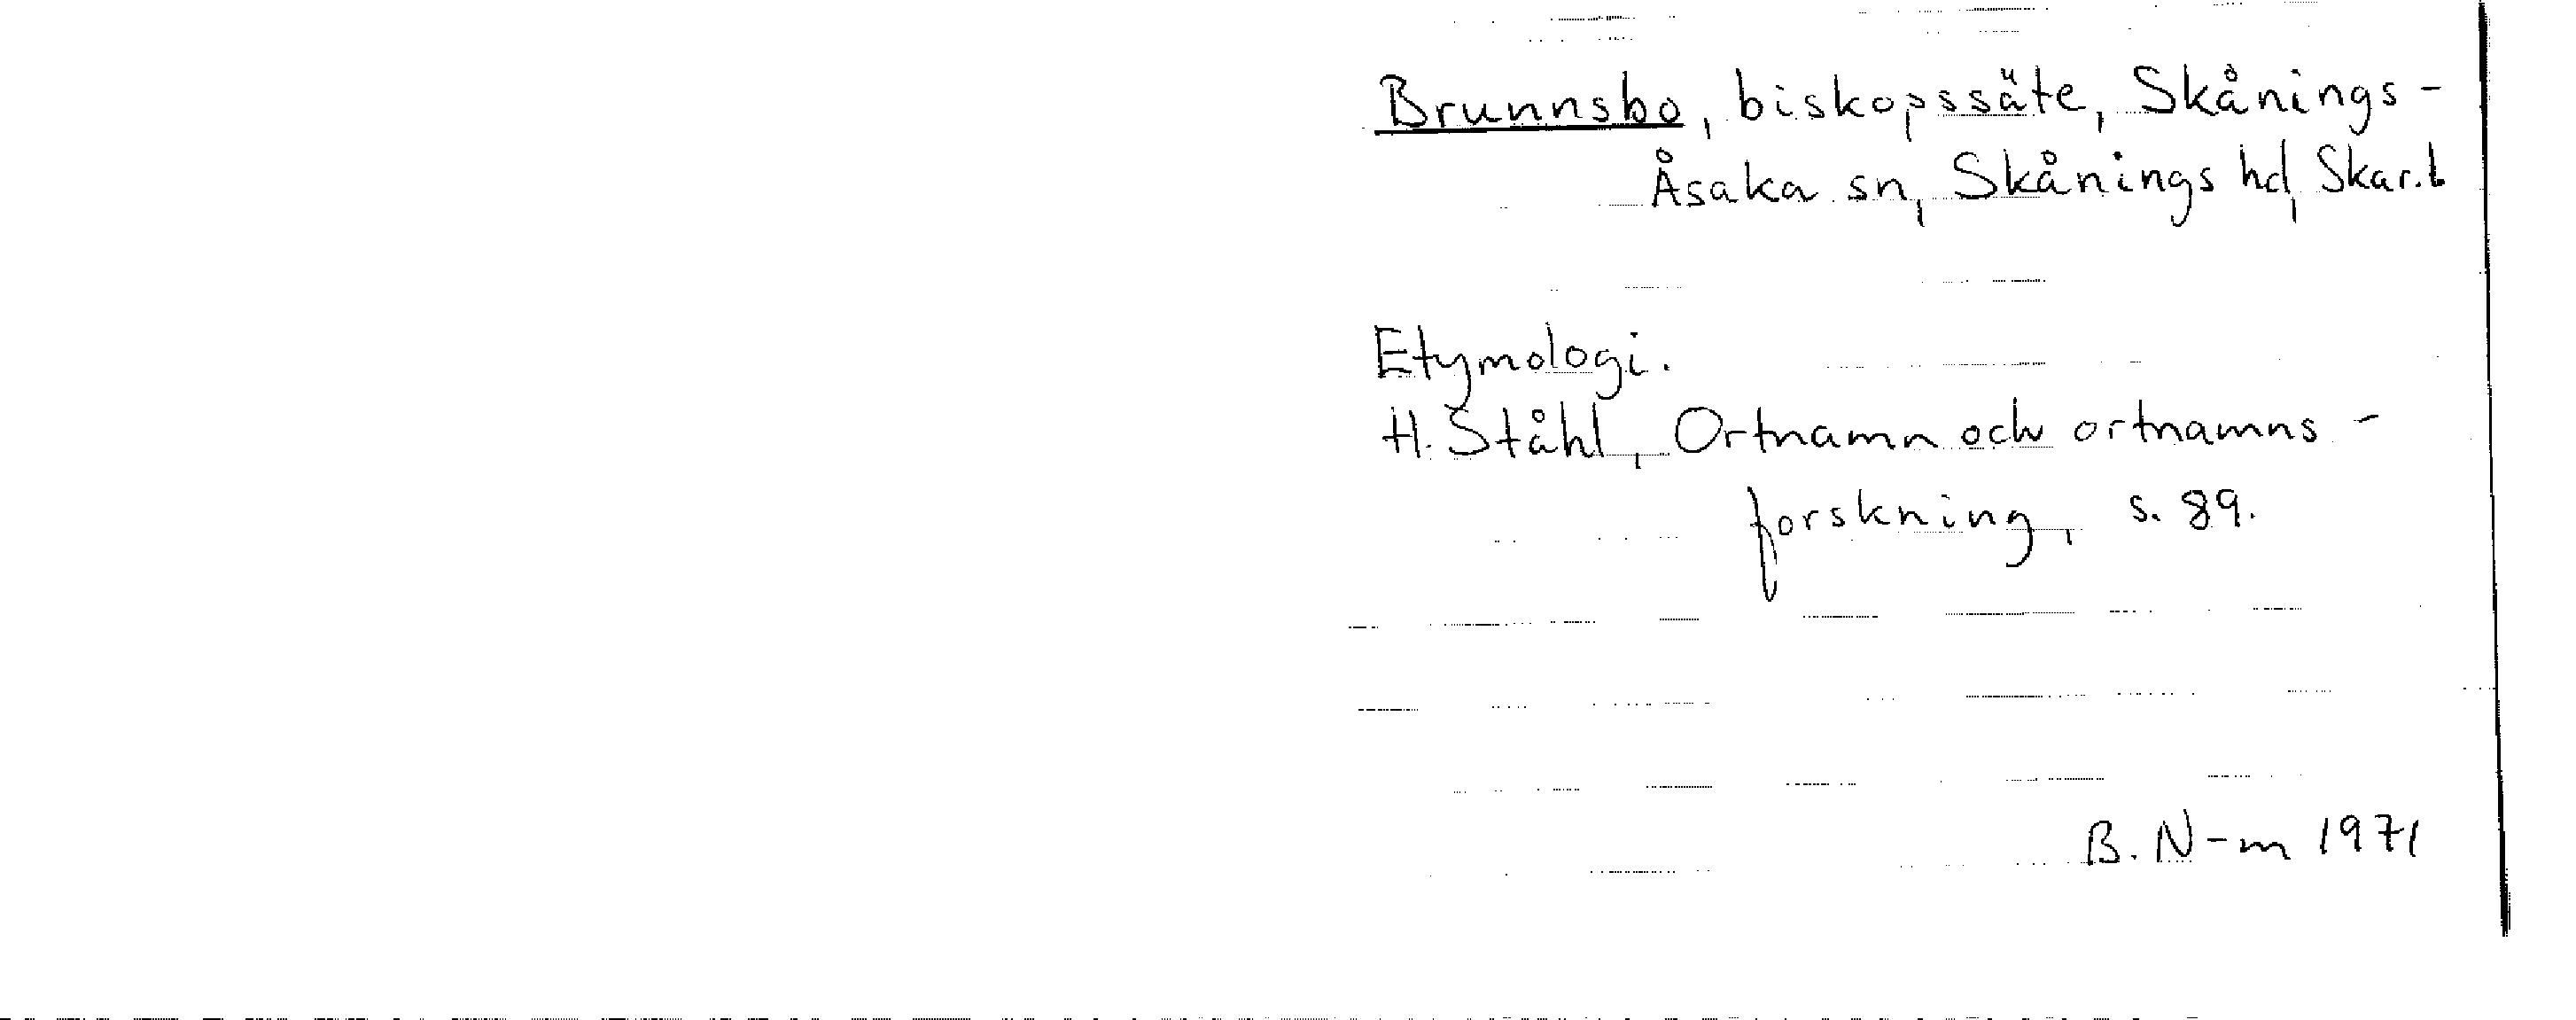 Brunnsbo, biskopssäte, Skånings-
Åsaka sn, Skånings hd, Skar.l
Etymologi.
H. Ståhl, Ortnamn och ortnamns-
forskning, s. 89.
B. N-m 1971